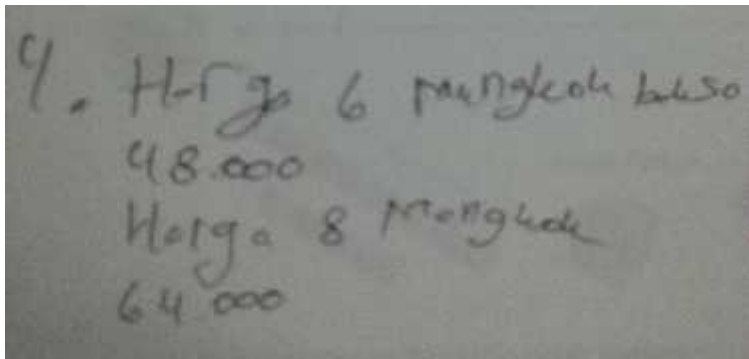 4. Harga 6 mangkok bakso
48.000
Harga 8 mangkok
64 000